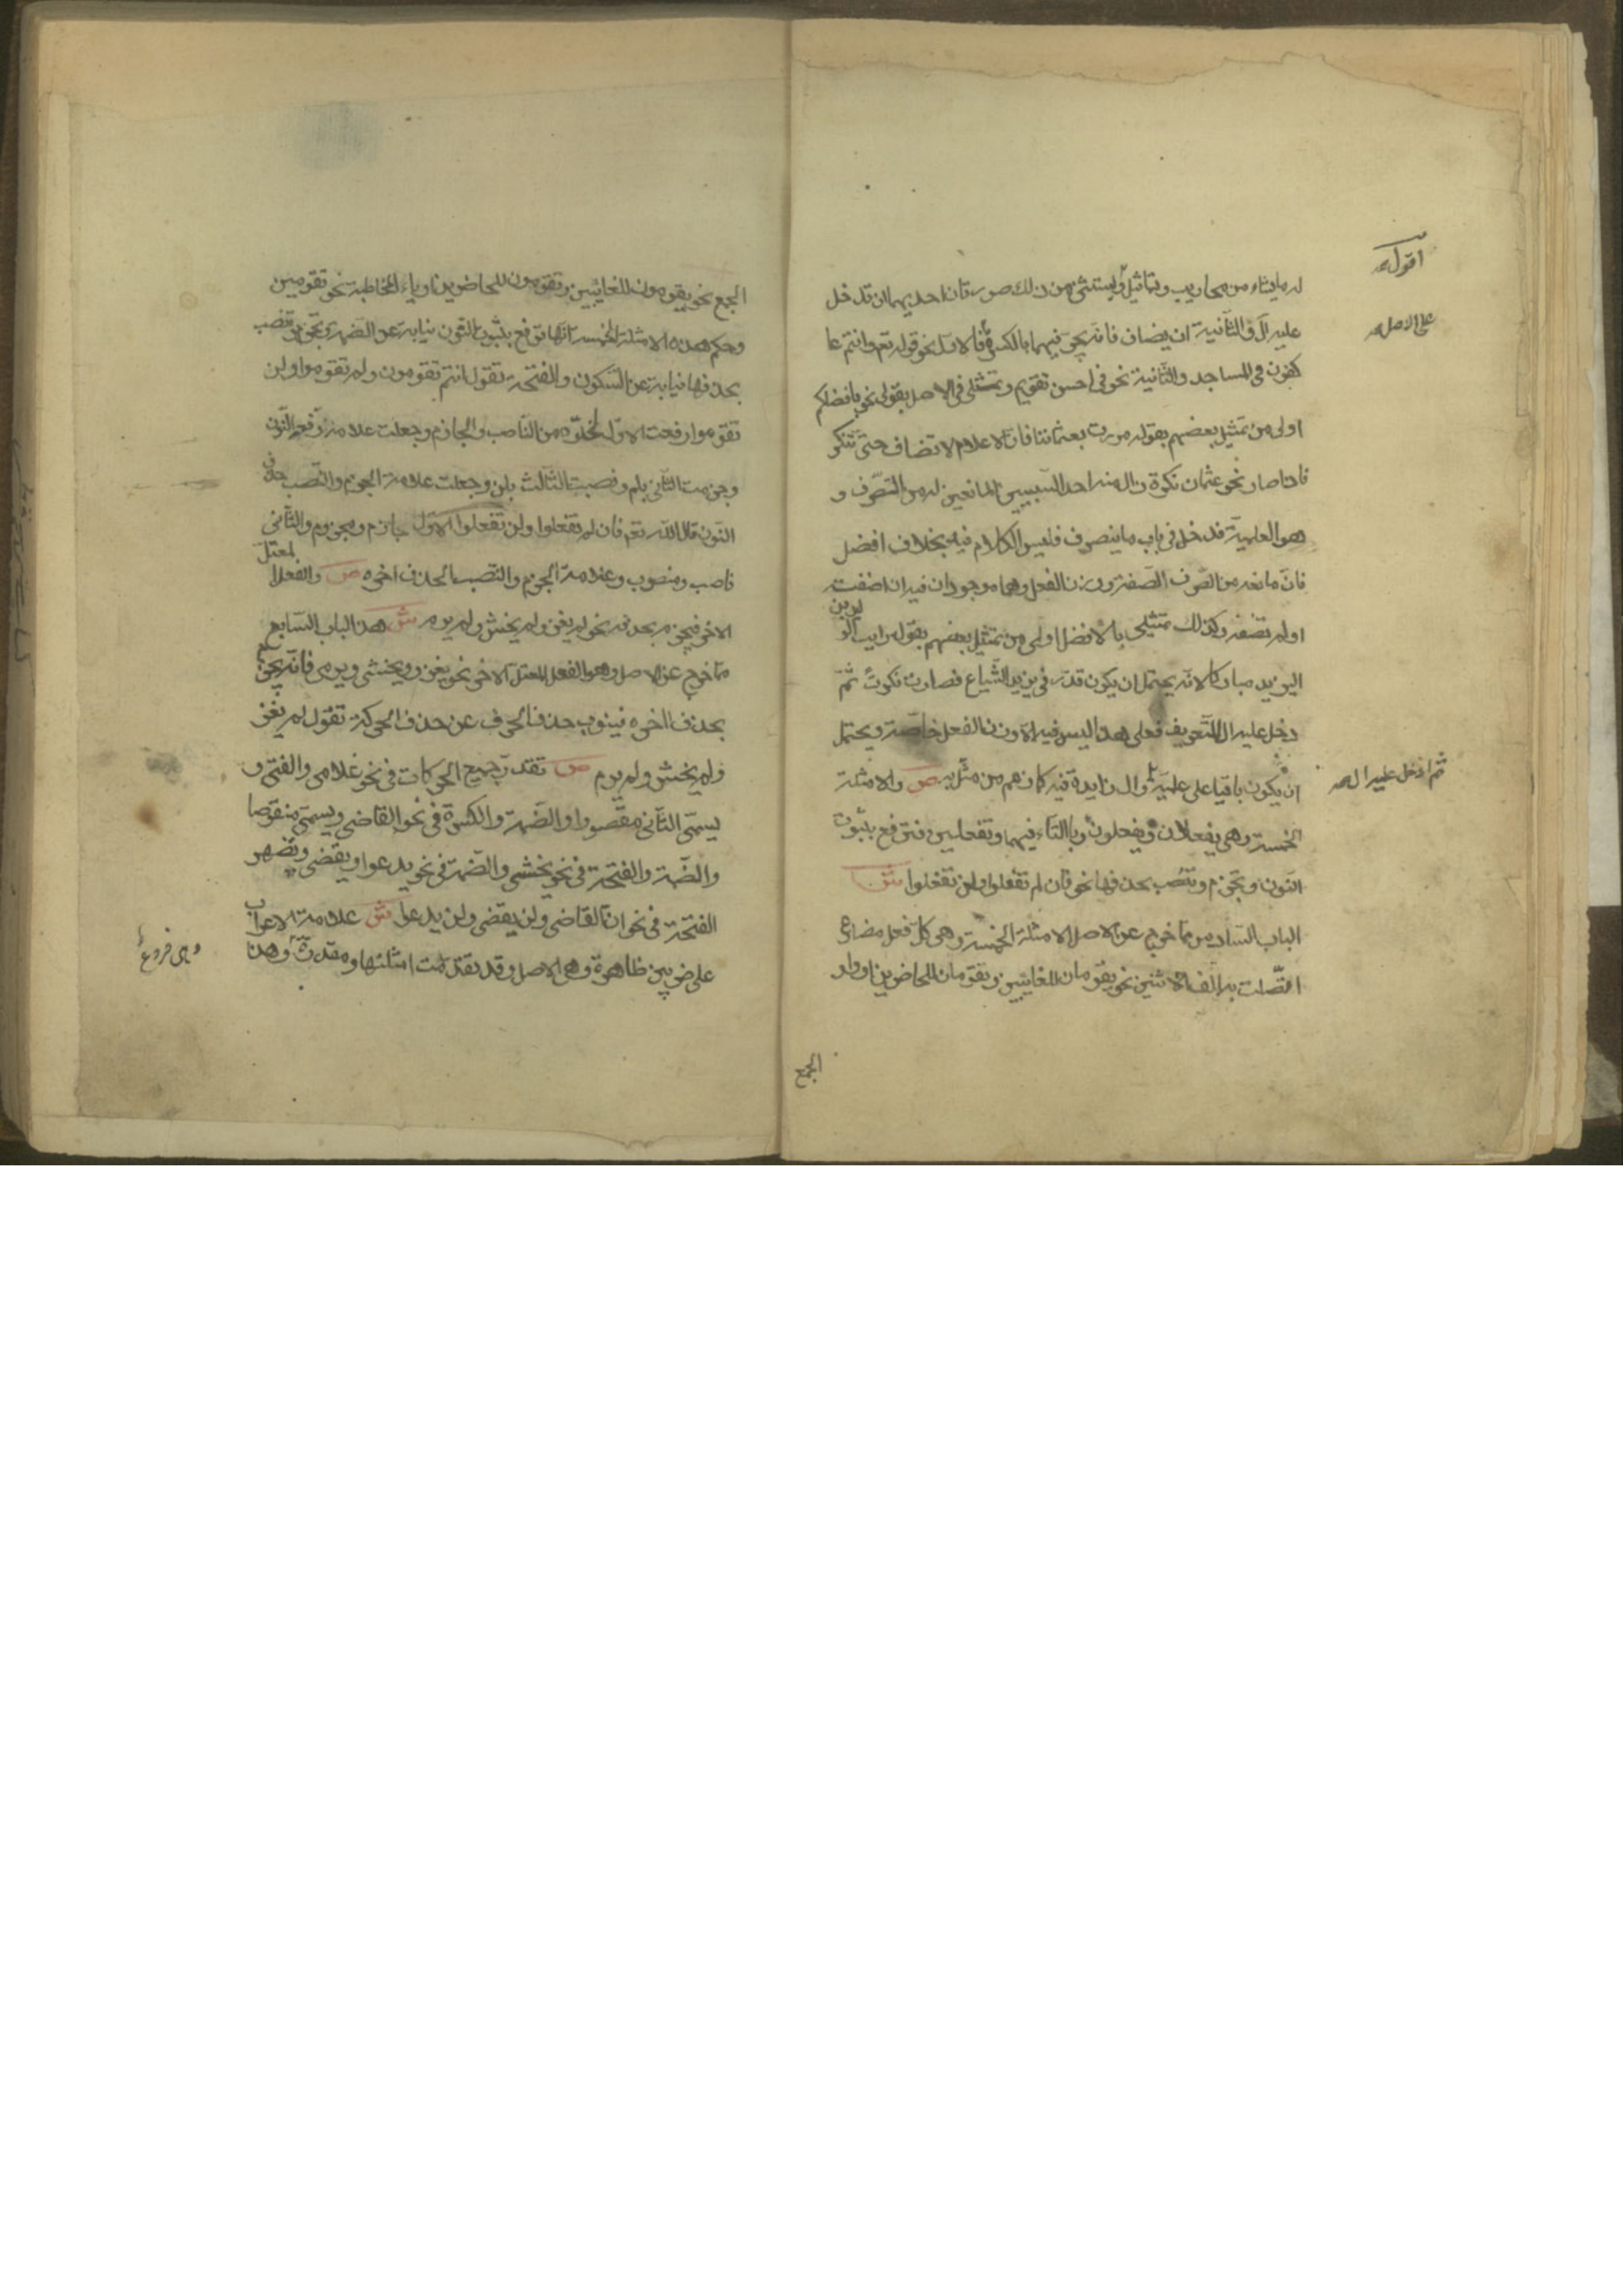 له ما يشاء من محاريب وتماثيل ويستثنى من ذلك صورتان احديهما ان تدخل
عليه ال والثانية ان يضاف فانه يجر فيهما بالكسرة فالاولى نحو قوله تع وانتم عا
كفون في المساجد والثانية نحو في احسن تقويم وتمثيلي في الاصل بقولي نحو بافضلكم
اولى من تمثيل بعضهم بقوله مررت بعثماننا فان الاعلام لا تضاف حتى تنكر
فاذا صار نحو عثمان نكرة زال منه احد السببين المانعين له من الصرف و
هو العلمية فدخل في باب ما ينصرف فليس الكلام فيه بخلاف افضل
فان مانعه من الصرف الصفة ووزن الفعل وهما موجودان فيه ان اضفته
او لم تضفه وكذلك تمثيلي بالافضل اولى من تمثيل بعضهم بقوله رايت الوليد بن
اليزيد مباركا لانه يحتمل ان يكون قدر في يزيد الشياع فصار نكرة ثم
دخل عليه ال للتعريف فعلى هذا ليس فيه الا وزن الفعل خاصة ويحتمل
ان يكون باقيا على علميته وال زايدة فيه كما زعم من مثل به ص والامثلة
الخمسة وهي يفعلان ويفعلون وبالتاء فيهما وتفعلين فترفع بثبوت
النون وتجزم وتنصب بحذفها نحو فان لم تفعلوا ولن تفعلوا ش
الباب السادس مما خرج عن الاصل الامثلة الخمسة وهي كل فعل مضارع
اتصلت به الف الاثنين نحو يقومان للغايبين وتقومان للحاضرين او واو
الجمع
اقول
على الاصل
ثم ادخل عليه ال
الجمع نحو يقومون للغايبين وتقومون للحاضرين او ياء المخاطبة نحو تقومين
وحكم هذه الامثلة الخمسة انها ترفع بثبوت النون نيابة عن الضمة وتجزم وتنصب
بحذفها نيابة عن السكون والفتحة تقول انتم تقومون ولم تقوموا ولن
تقوموا رفعت الاول لخلوه من الناصب والجازم وجعلت علامة رفعه النون
وجزمت الثاني بلم ونصبت الثالث بلن وجعلت علامة الجزم والنصب حذف
النون قال الله تع فان لم تفعلوا ولن تفعلوا الاول جازم ومجزوم والثاني
ناصب ومنصوب وعلامة الجزم والنصب الحذف اخره ص والفعل المعتل
الاخر فيجزم بحذفه نحو لم يغز ولم يخش ولم يرم ش هذا الباب السابع
مما خرج عن الاصل وهو الفعل المعتل الاخر نحو يغزو ويخشى ويرمى فانه يجزم
بحذف اخره فينوب حذف الحرف عن حذف الحركة تقول لم يغز
ولم يخش ولم يرم ص تقدر جميع الحركات في نحو غلامي والفتى و
يسمى الثاني مقصورا والضمة والكسرة في نحو القاضي ويسمى منقوصا
والضمة والفتحة في نحو يخشى والضمة في نحو يدعوا ويقضي وتضهر
الفتحة في نحو ان القاضي ولن يقضي ولن يدعوا ش علامة الاعراب
على ضربين ظاهرة وهي الاصل وقد تقدمت امثلتها ومقدرة وهذا